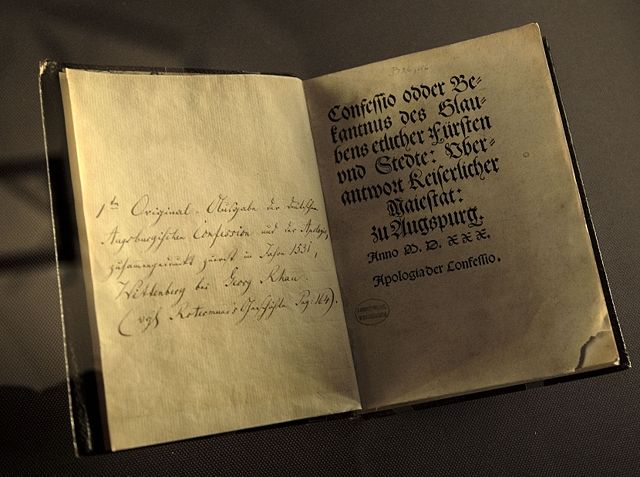 1te Original-Ausgabe der Deutschen
Augsburgischen Confession und der Apologie,
zusammengedruckt zuerst im Jahre 1531,
Wittenberg bei Georg Rhau.
(vgl. Geschichte Pag. 164).
Confessio odder Be-
kantnus des Glau-
bens etlicher Fürsten
vnd Stedte: Vber-
antwort Keiserlicher
Maiestat:
zu Augspurg.
Anno M. D. XXX.
Apologia der Confessio.